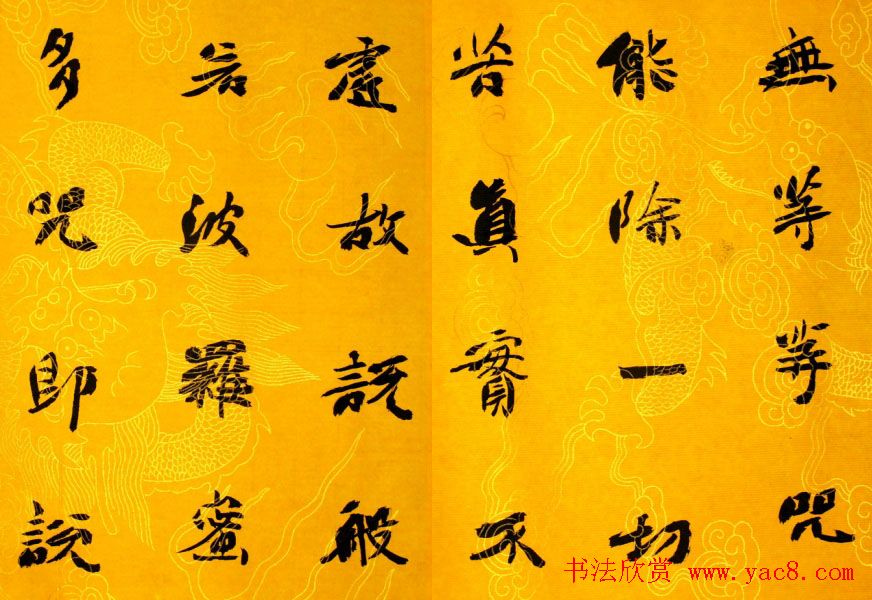 無等等咒
能除一切
苦真實不
虛故說般
若波羅蜜
多咒即說
书法欣赏 www.yac8.com